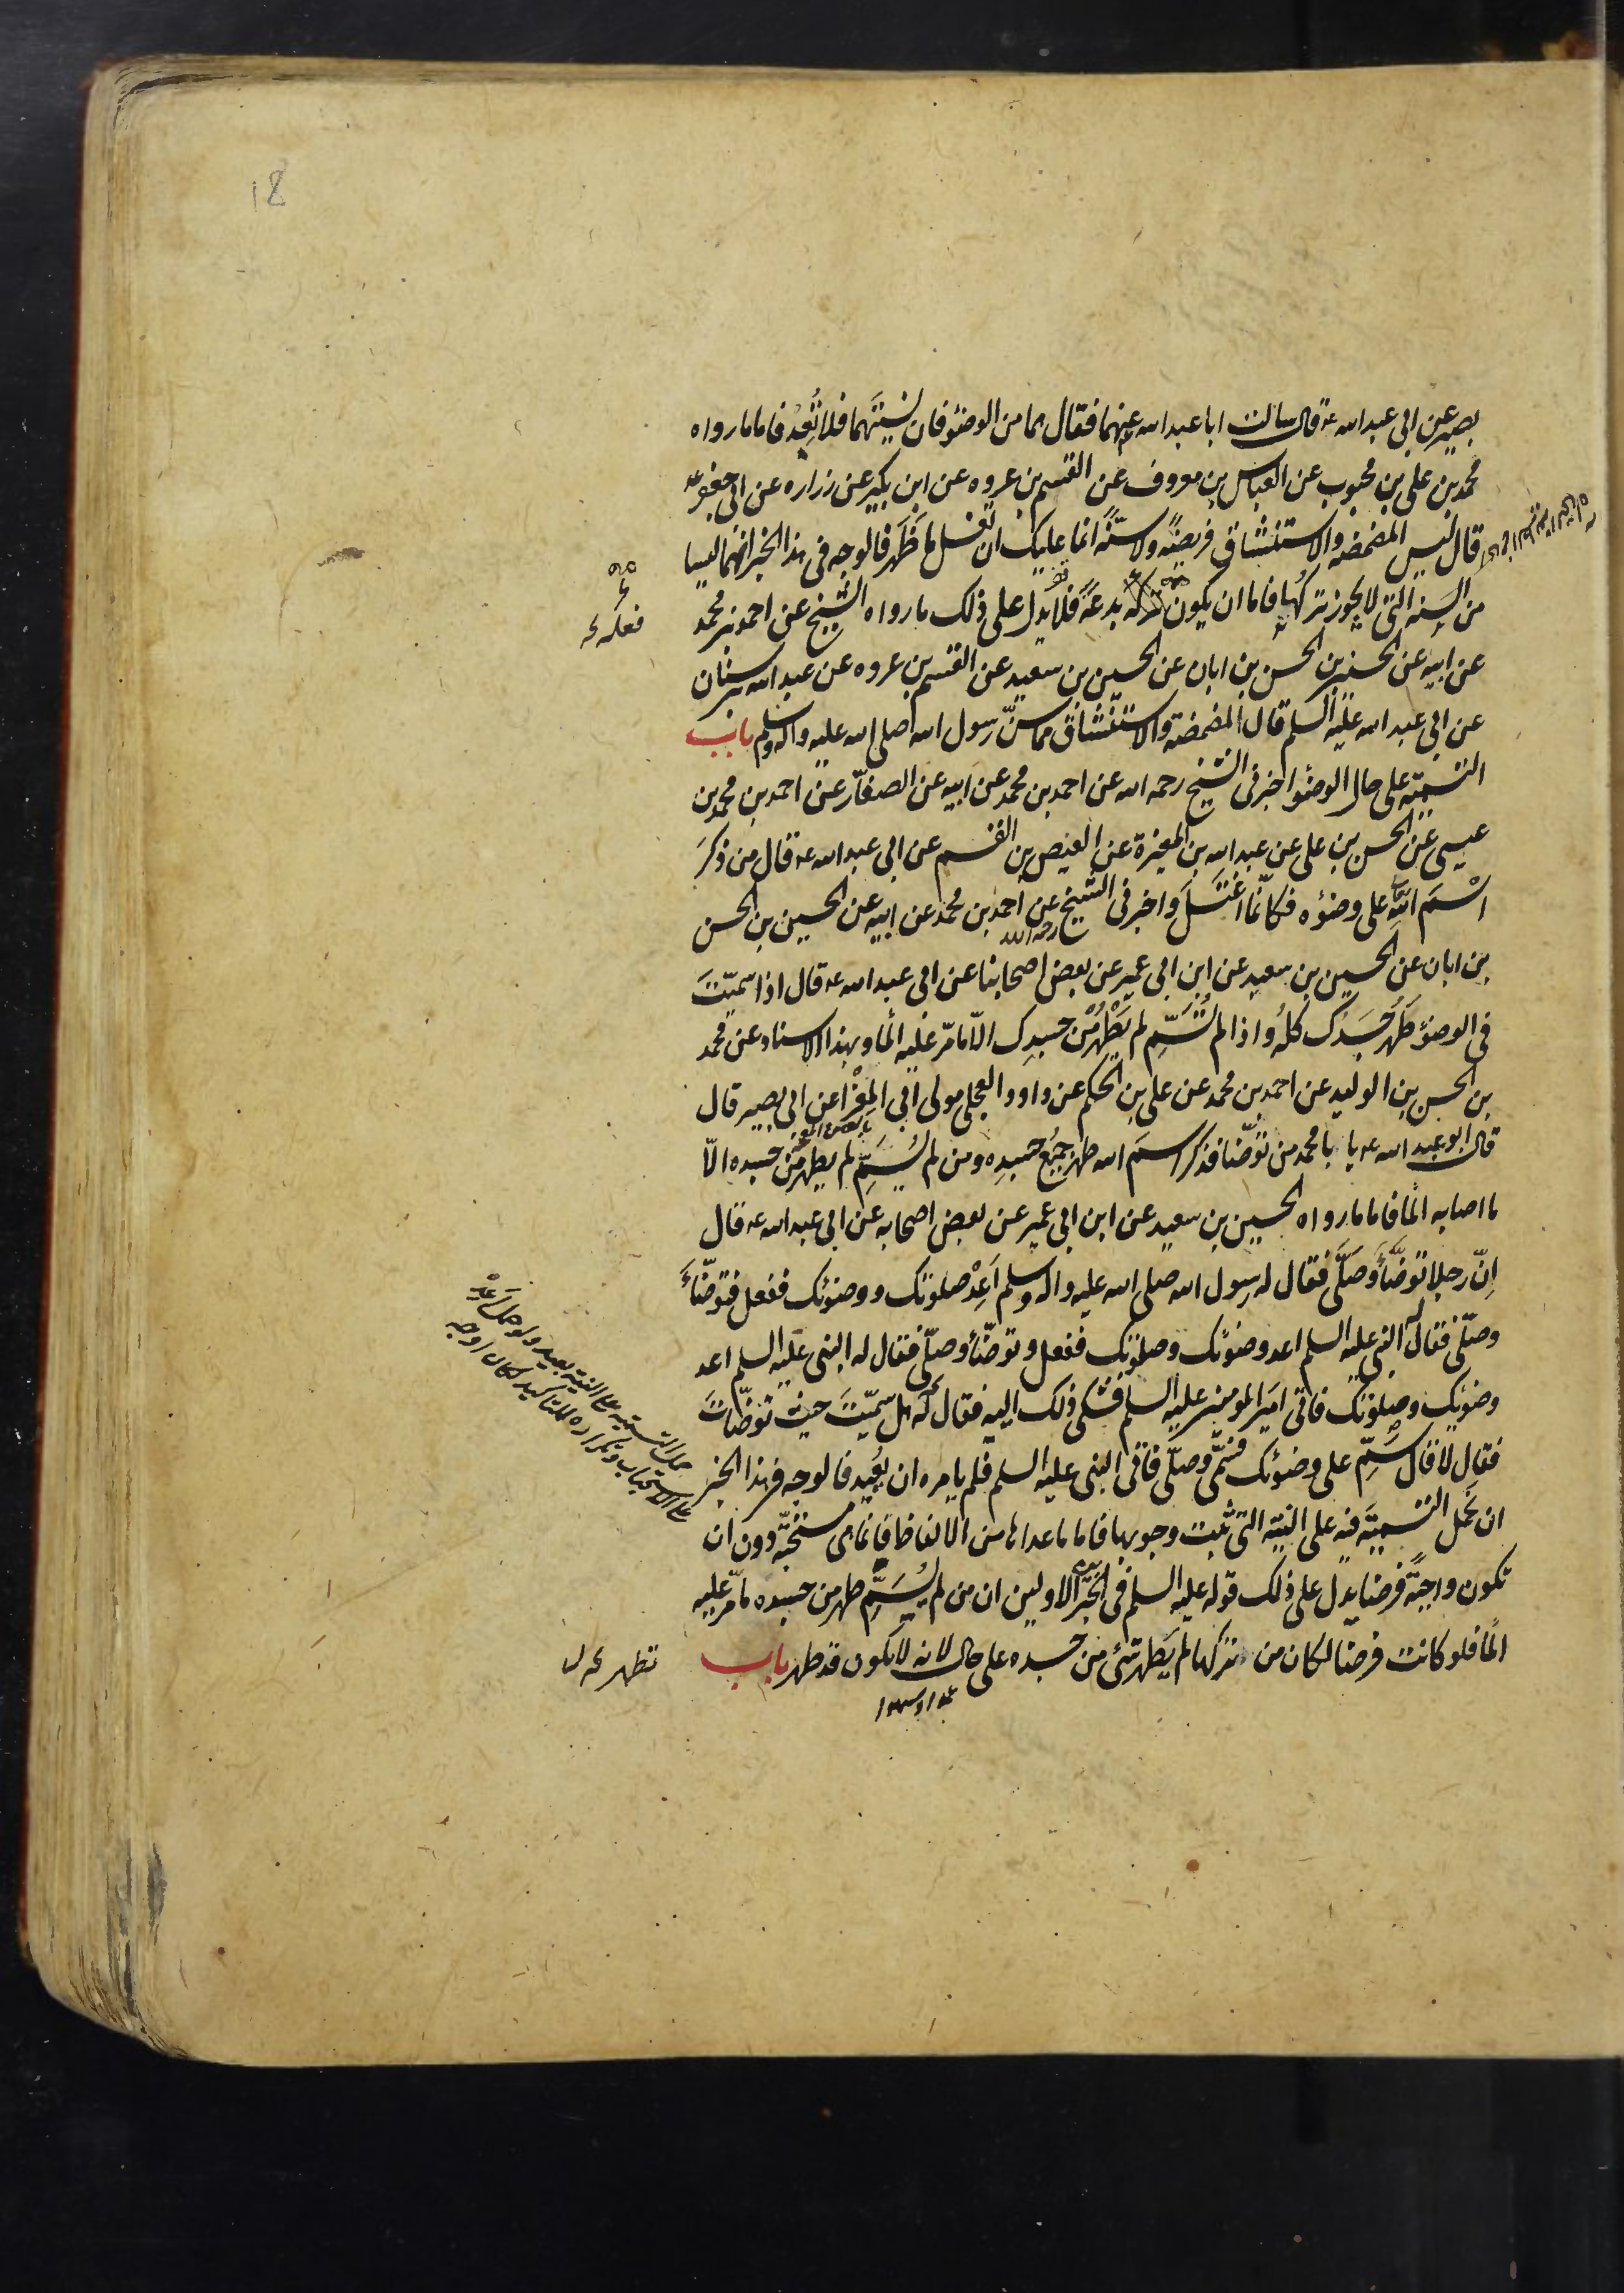 18
بصير عن ابى عبد الله ع قال سالت ابا عبد الله عنهما فقال هما من الوضوء فان نَسِيتَهما فلا تُعِدْ فاما ما رواه
محمد بن على بن محبوب عن العباس بن معروف عن القسم بن عروه عن ابن بكير عن زراره عن ابى جعفر ع
قال ليس المضمضه والاستنشاق فريضةً ولا سنّةً انما عليك ان تغسل ما ظهَر فالوجه فى هذا الخبر انهما ليسا
من السنه التى لا يجوز تركُها فاما ان يكون تركه بدعةً فلا يدل على ذلك ما رواه الشيخ عن احمد بن محمد
فعله
عن ابيه عن الحسين بن الحسن بن ابان عن الحسين بن سعيد عن القسم بن عروه عن عبد الله بن سنان
عن ابى عبد الله عليه السلم قال المضمضة والاستنشاق مما سنّ رسول الله صلى الله عليه واله وسلم باب
التسميّة على حال الوضوء اخبرنى الشيخ رحمه الله عن احمد بن محمد عن ابيه عن الصفّار عن احمد بن محمد بن
عيسى عن الحسن بن على عن عبد الله بن المغيرة عن العيص بن القسم عن ابى عبد الله ع قال من ذكَرَ
اسْمَ اللهِ على وضوئه فكانّما اغْتَسَلَ واخبرنى الشيخ رحمه الله عن احمد بن محمد عن ابيه عن الحسين بن الحسن
بن ابان عن الحسين بن سعيد عن ابن ابى عمير عن بعض اصحابنا عن ابى عبد الله ع قال اذا سَمّيْتَ
فى الوضؤ طَهُرَ جَسَدُك كلُه واذا لم تُسَمِّ لم يَطْهُرْ مِنْ جسدِك الّا ما مَرّ عليه الماء وبهذا الاسناد عن محمد
بن الحسن بن الوليد عن احمد بن محمد عن على بن الحكم عن داود العجلى مولى ابى المِغْرا عن ابى بصير قال
قال ابو عبد الله ع يا با محمد من توضّا فذكر اسمَ الله طهر جميعُ جسدِه ومن لم يُسَمِّ لم يطهر مِن جسده الّا
ما اصابه الماء فاما ما رواه الحسين بن سعيد عن ابن ابى عمير عن بعض اصحابه عن ابى عبد الله ع قال
اِنّ رجلا توضَّأَ وصَلَّى فقال له رسول الله صلى الله عليه واله وسلم اَعِدْ صلوتك ووضوئك ففعل فتوضّأَ
وصلّى فقال له النبى عليه السلم اعد وضوئك وصلوتك ففعل وتوضّأ وصلّى فقال له النبى عليه السلم اعد
وضوئك وصلوتك فاتى امير المومنين عليه السلم فشكى ذلك اليه فقال له هل سمّيتَ حيث توضّاتَ
فقال لا قال سَمِّ على وضوئك فسَمَّى وصلّى فاتى النبى عليه السلم فلم يامره ان يُعيد فالوجه فى هذا الخبر
ان نحمل التسميّة فيه على النيّة التى ثبت وجوبها فاما ما عداها من الالفاظ فانما هى مستحبّه دون ان
تكون واجبةً فرضا يدل على ذلك قوله عليه السلم فى الخبرين الاولين ان من لم يُسَمِّ طهر من جسده ما مرّ عليه
الماء فلو كانت فرضًا لكان من تركها لم يَطهر شئ من جسده على حال لانه لا يكون قد طهر باب
عمدا او سهوا
حمل التسميه على النية بعيد ولو حمل
على الاستحباب وتكراره للتاكيد لكان اوجه
تطهر